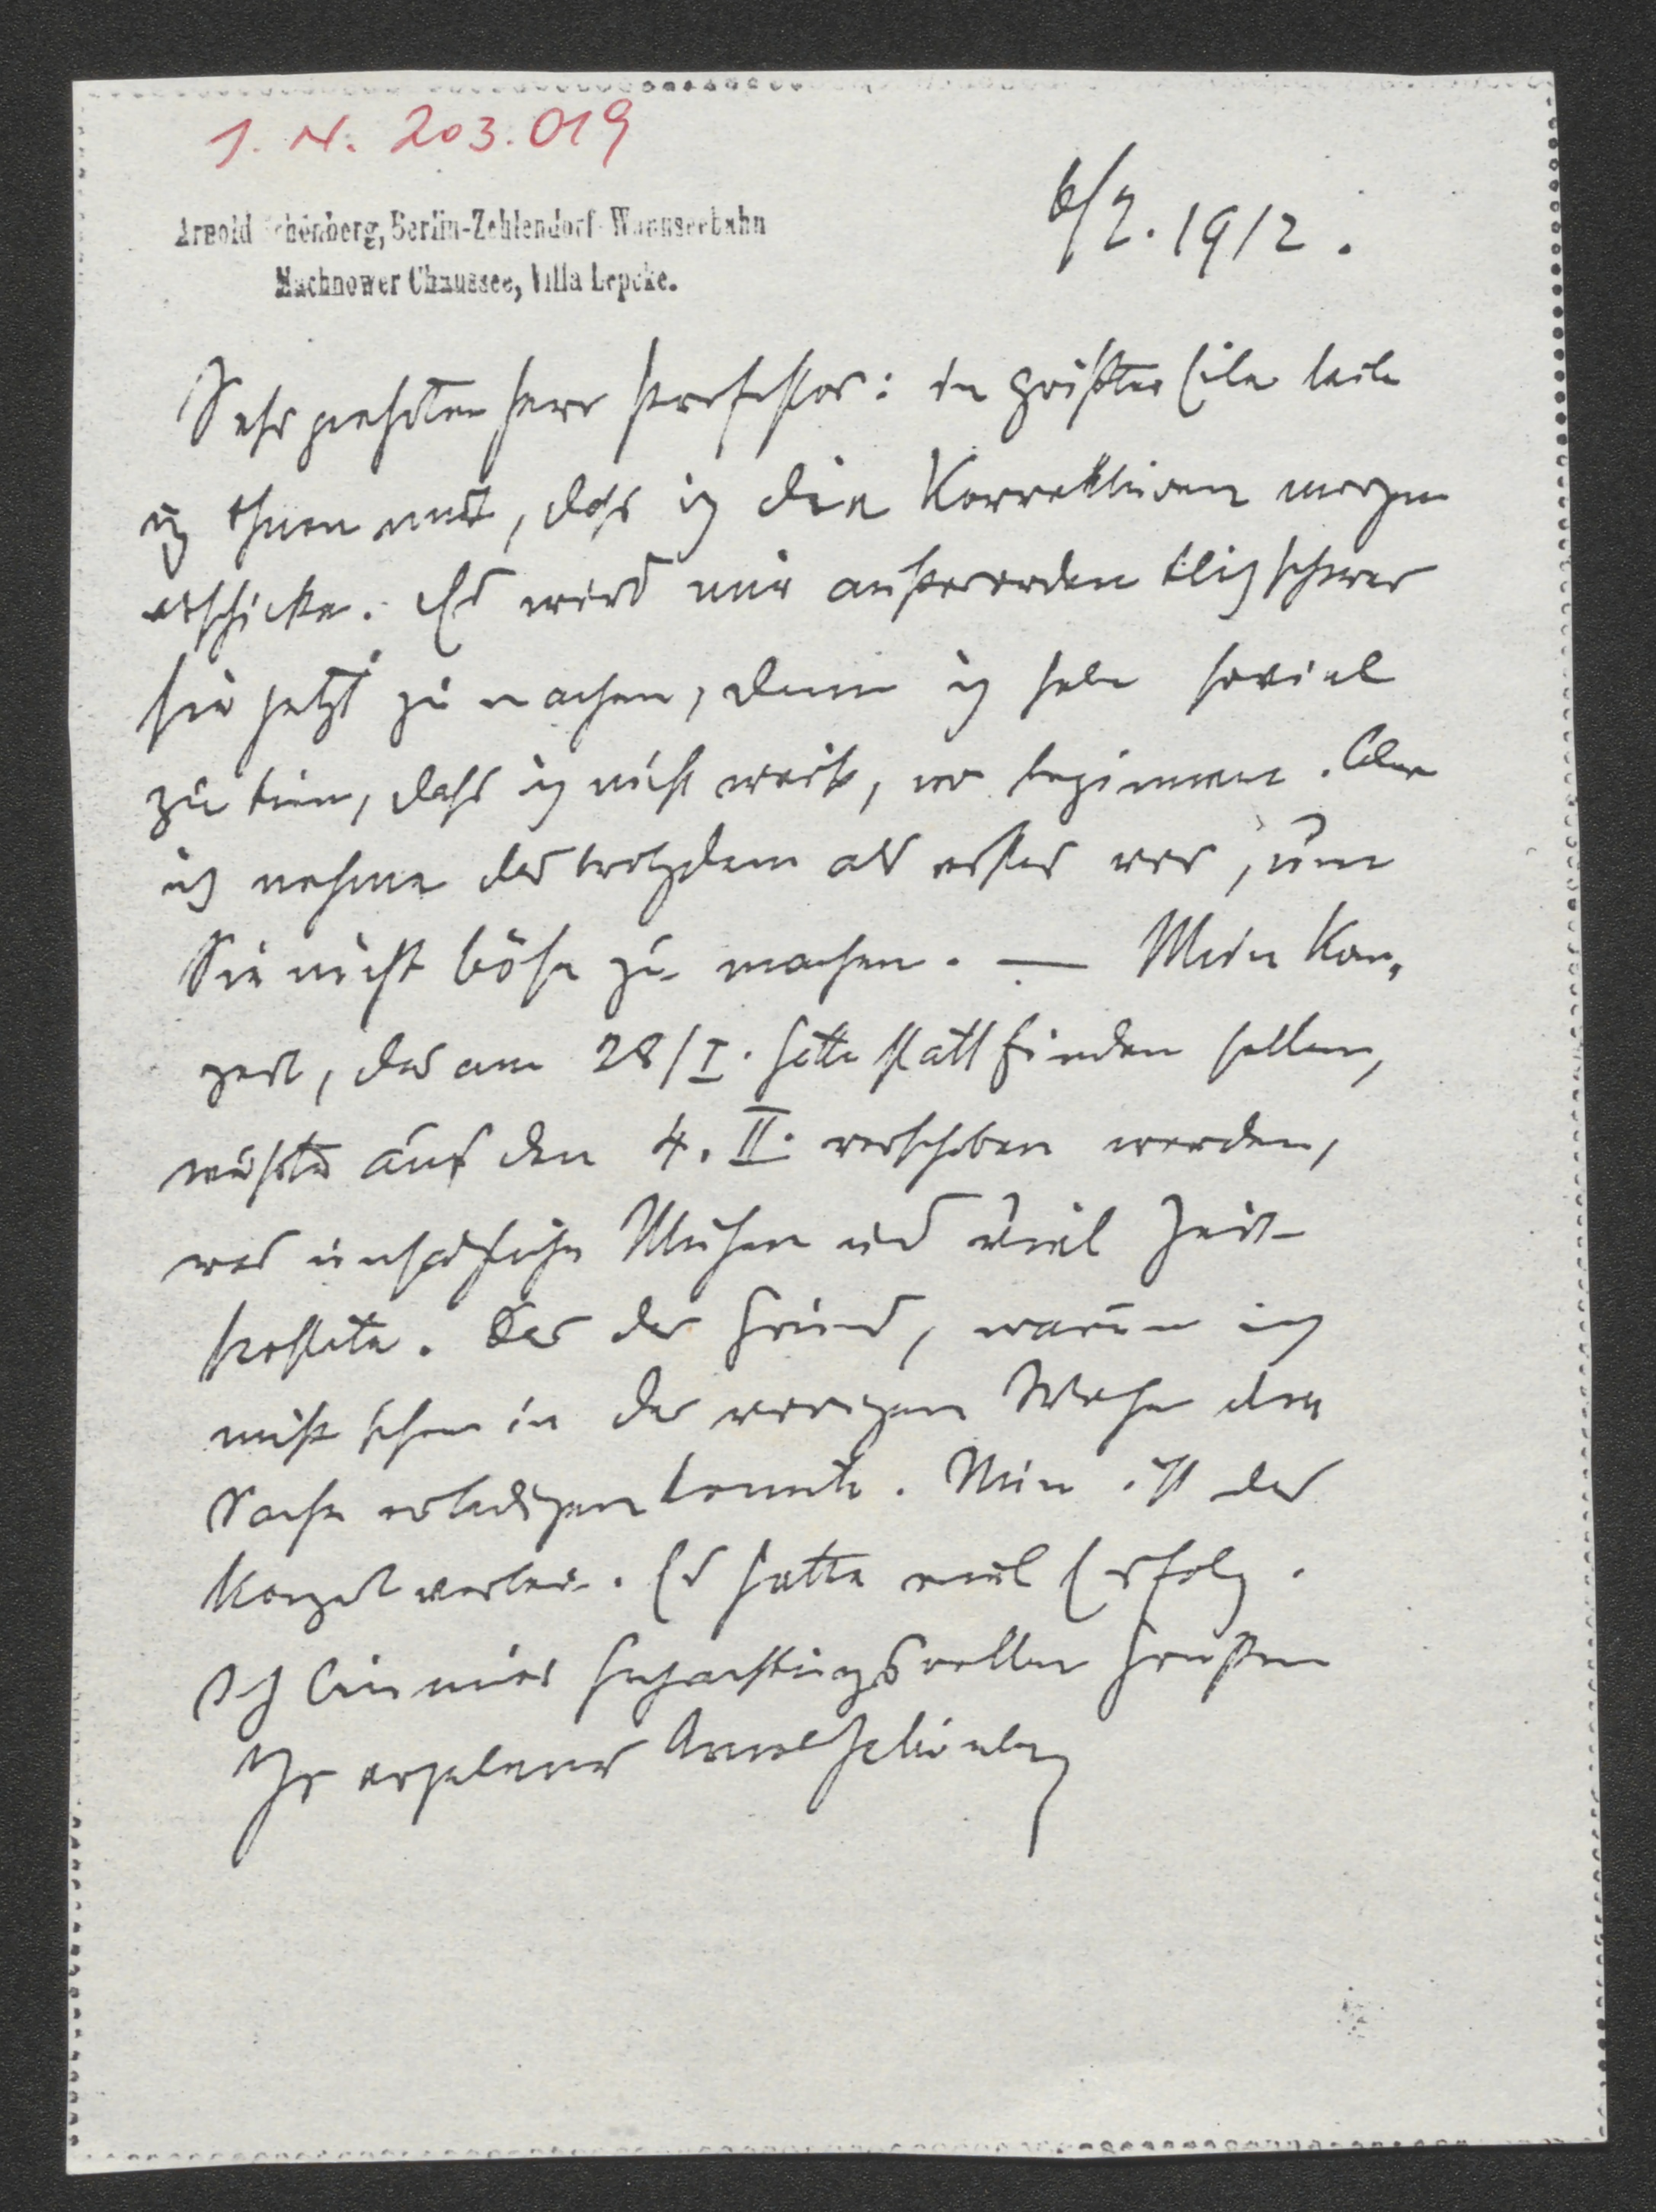 I. N. 203.019
Arnold Schönberg, Berlin-Zehlendorf-Wannseebahn
Machnower Chaussee, Villa Lepcke.
6/2. 1912.
Sehr geehrter Herr Professor: in größter Eile teile
ich Ihnen mit, dass ich die Korrekturen morgen
abschicke. Es wird mir außerordentlich schwer
sie jetzt zu machen, denn ich habe soviel
zu tun, dass ich nicht weiß, wo beginnen. Aber
ich nehme das trotzdem als erstes vor, um
Sie nicht böse zu machen. — Mein Kon-
zert, das am 28/I. hätte stattfinden sollen,
mußte auf den 4. II. verschoben werden,
was unsägliche Mühen und viel Zeit
kostete. Das der Grund, warum ich
nicht schon in der vorigen Woche die
Sache erledigen konnte. Nun ist das
Konzert vorbei. Es hatte viel Erfolg.
Ich bin mit hochachtungsvollen Grüßen
Ihr ergebener Arnold Schönberg